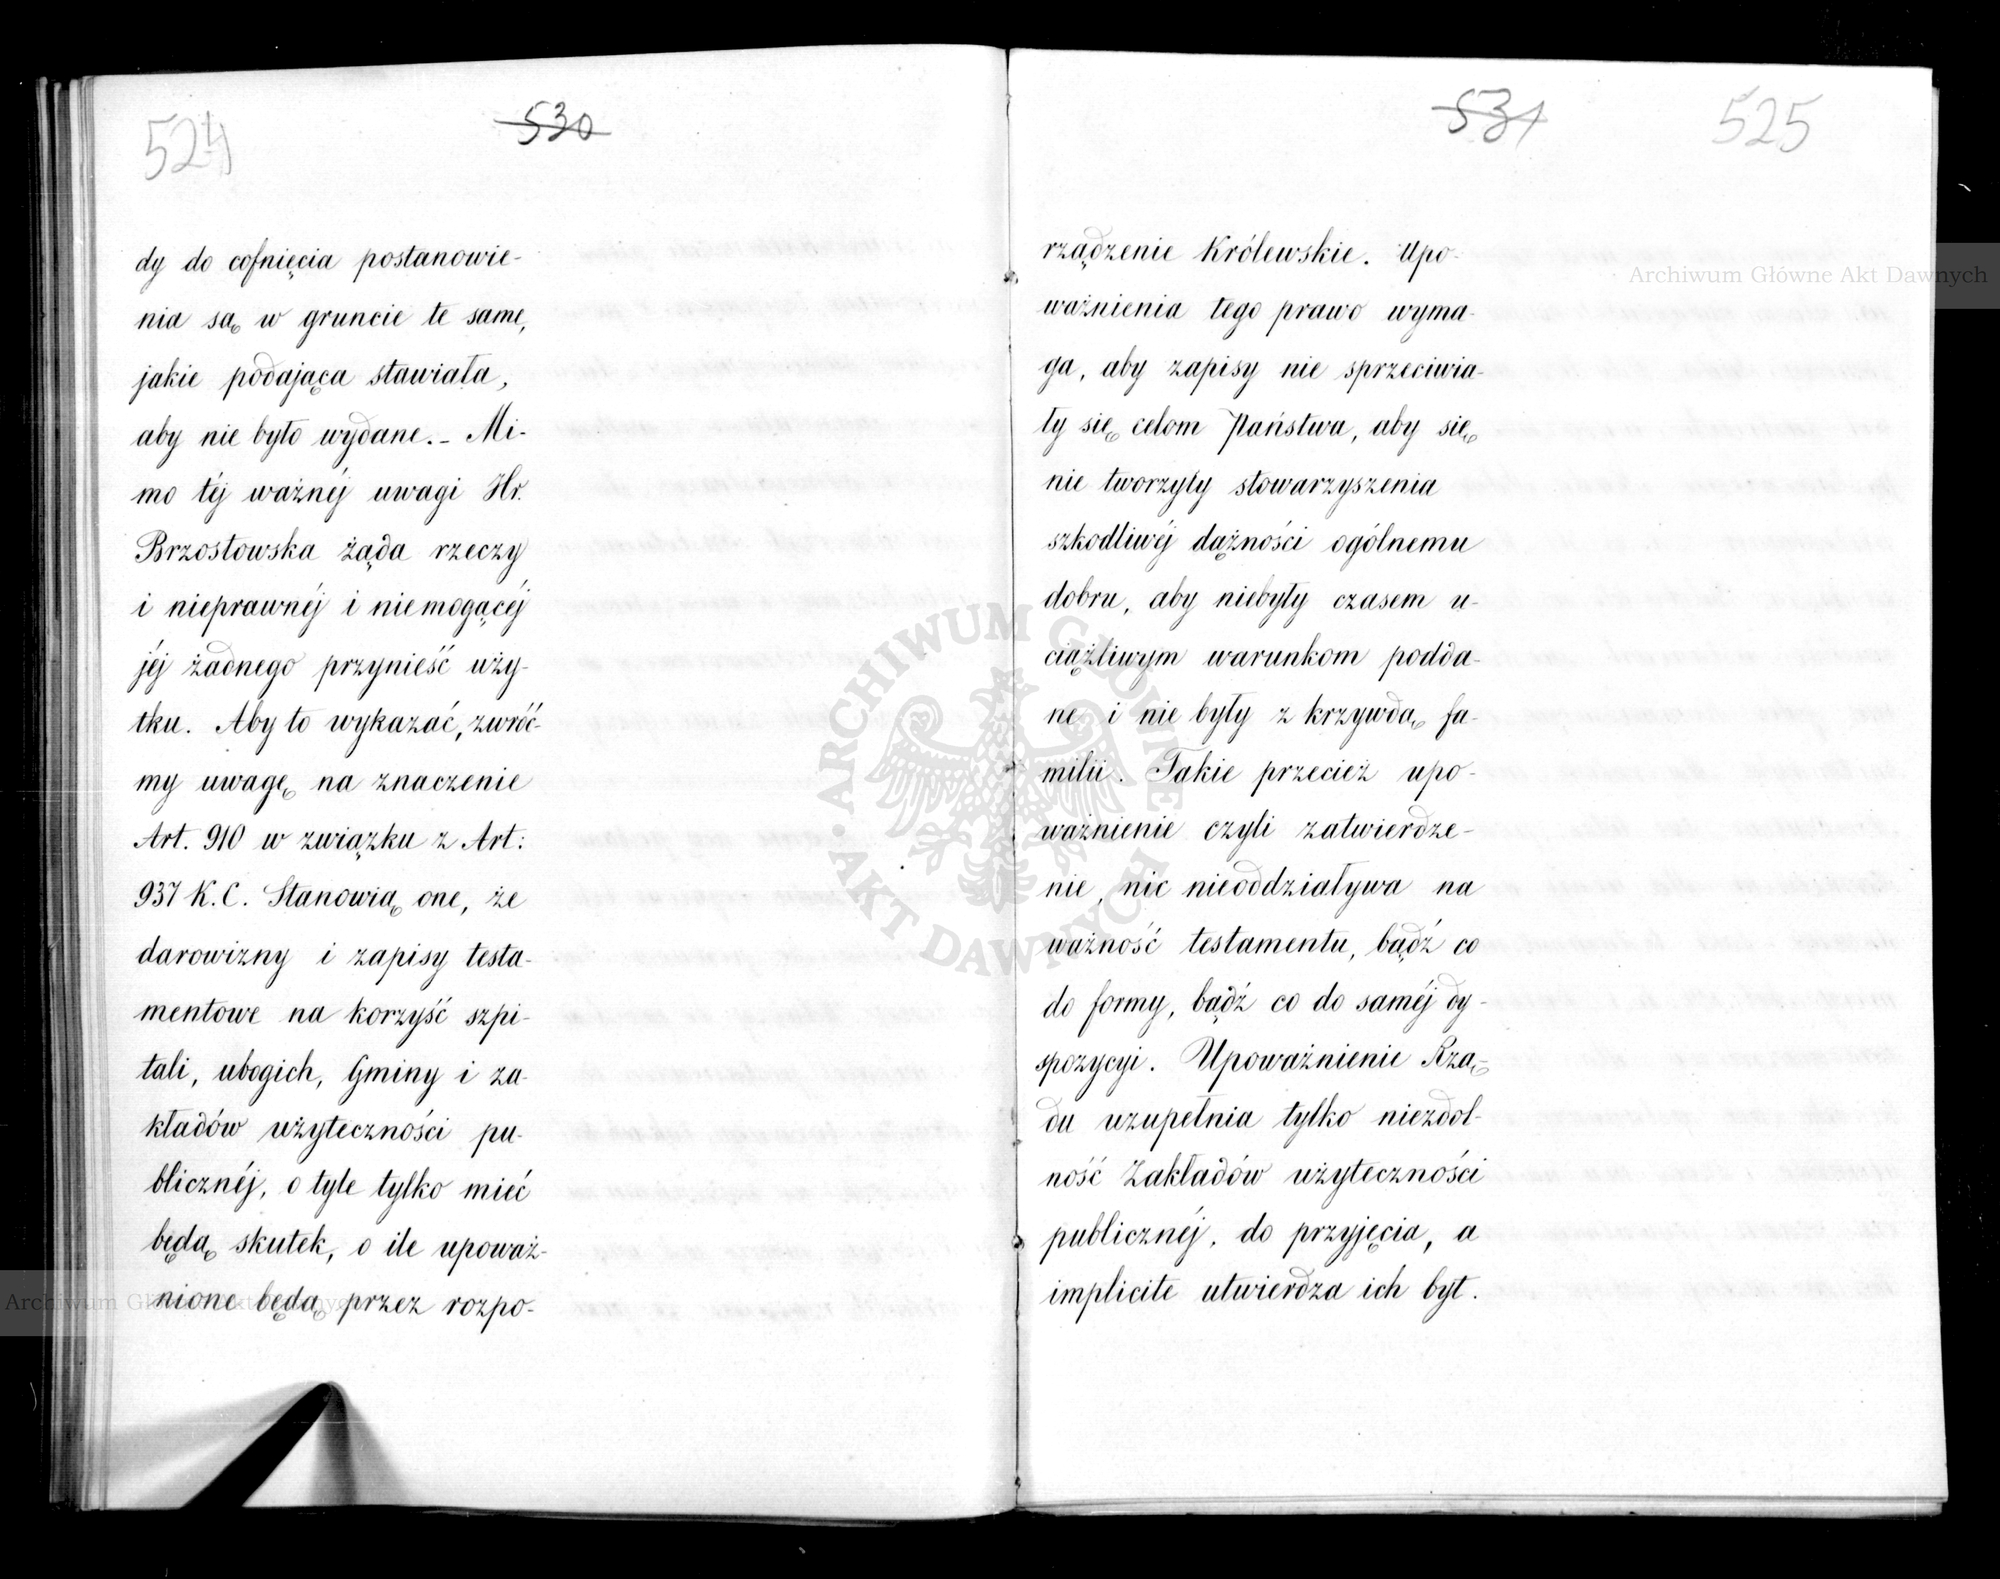 524
530
dy do cofnięcia postanowie-
nia są w gruncie te same,
jakie podająca stawiała,
aby nie było wydane. - Mi-
mo téj ważnéj uwagi Hr.
Brzostowska żąda rzeczy
i nieprawnéj i niemogącéj
jéj żadnego przynieść uży-
tku. Aby to wykazać, zwróć-
my uwagę na znaczenie
Art. 910 w związku z Art:
937 K. C. Stanowią one, że
darowizny i zapisy testa-
mentowe na korzyść szpi-
tali, ubogich, Gminy i za-
kładów użyteczności pu-
blicznéj, o tyle tylko mieć
będą skutek, o ile upoważ-
nione będą przez rozpo-
531
525
rządzenie Królewskie. Upo-
ważnienia tego prawo wyma-
ga, aby zapisy nie sprzeciwia-
ły się celom Państwa, aby się
nie tworzyły stowarzyszenia
szkodliwéj dążności ogólnemu
dobru, aby niebyły czasem u-
ciążliwym warunkom podda-
ne i nie były z krzywdą fa-
milii. Takie przecież upo-
ważnienie czyli zatwierdze-
nie, nic nieoddziaływa na
ważność testamentu, bądź co
do formy, bądź co do saméj dy-
spozycyi. Upoważnienie Rzą-
du uzupełnia tylko niezdol-
ność Zakładów użyteczności
publicznéj, do przyjęcia, a
implicite utwierdza ich byt.
Archiwum Główne Akt Dawnych
ARCHIWUM GŁÓWNE AKT DAWNYCH
Archiwum Główne Akt Dawnych